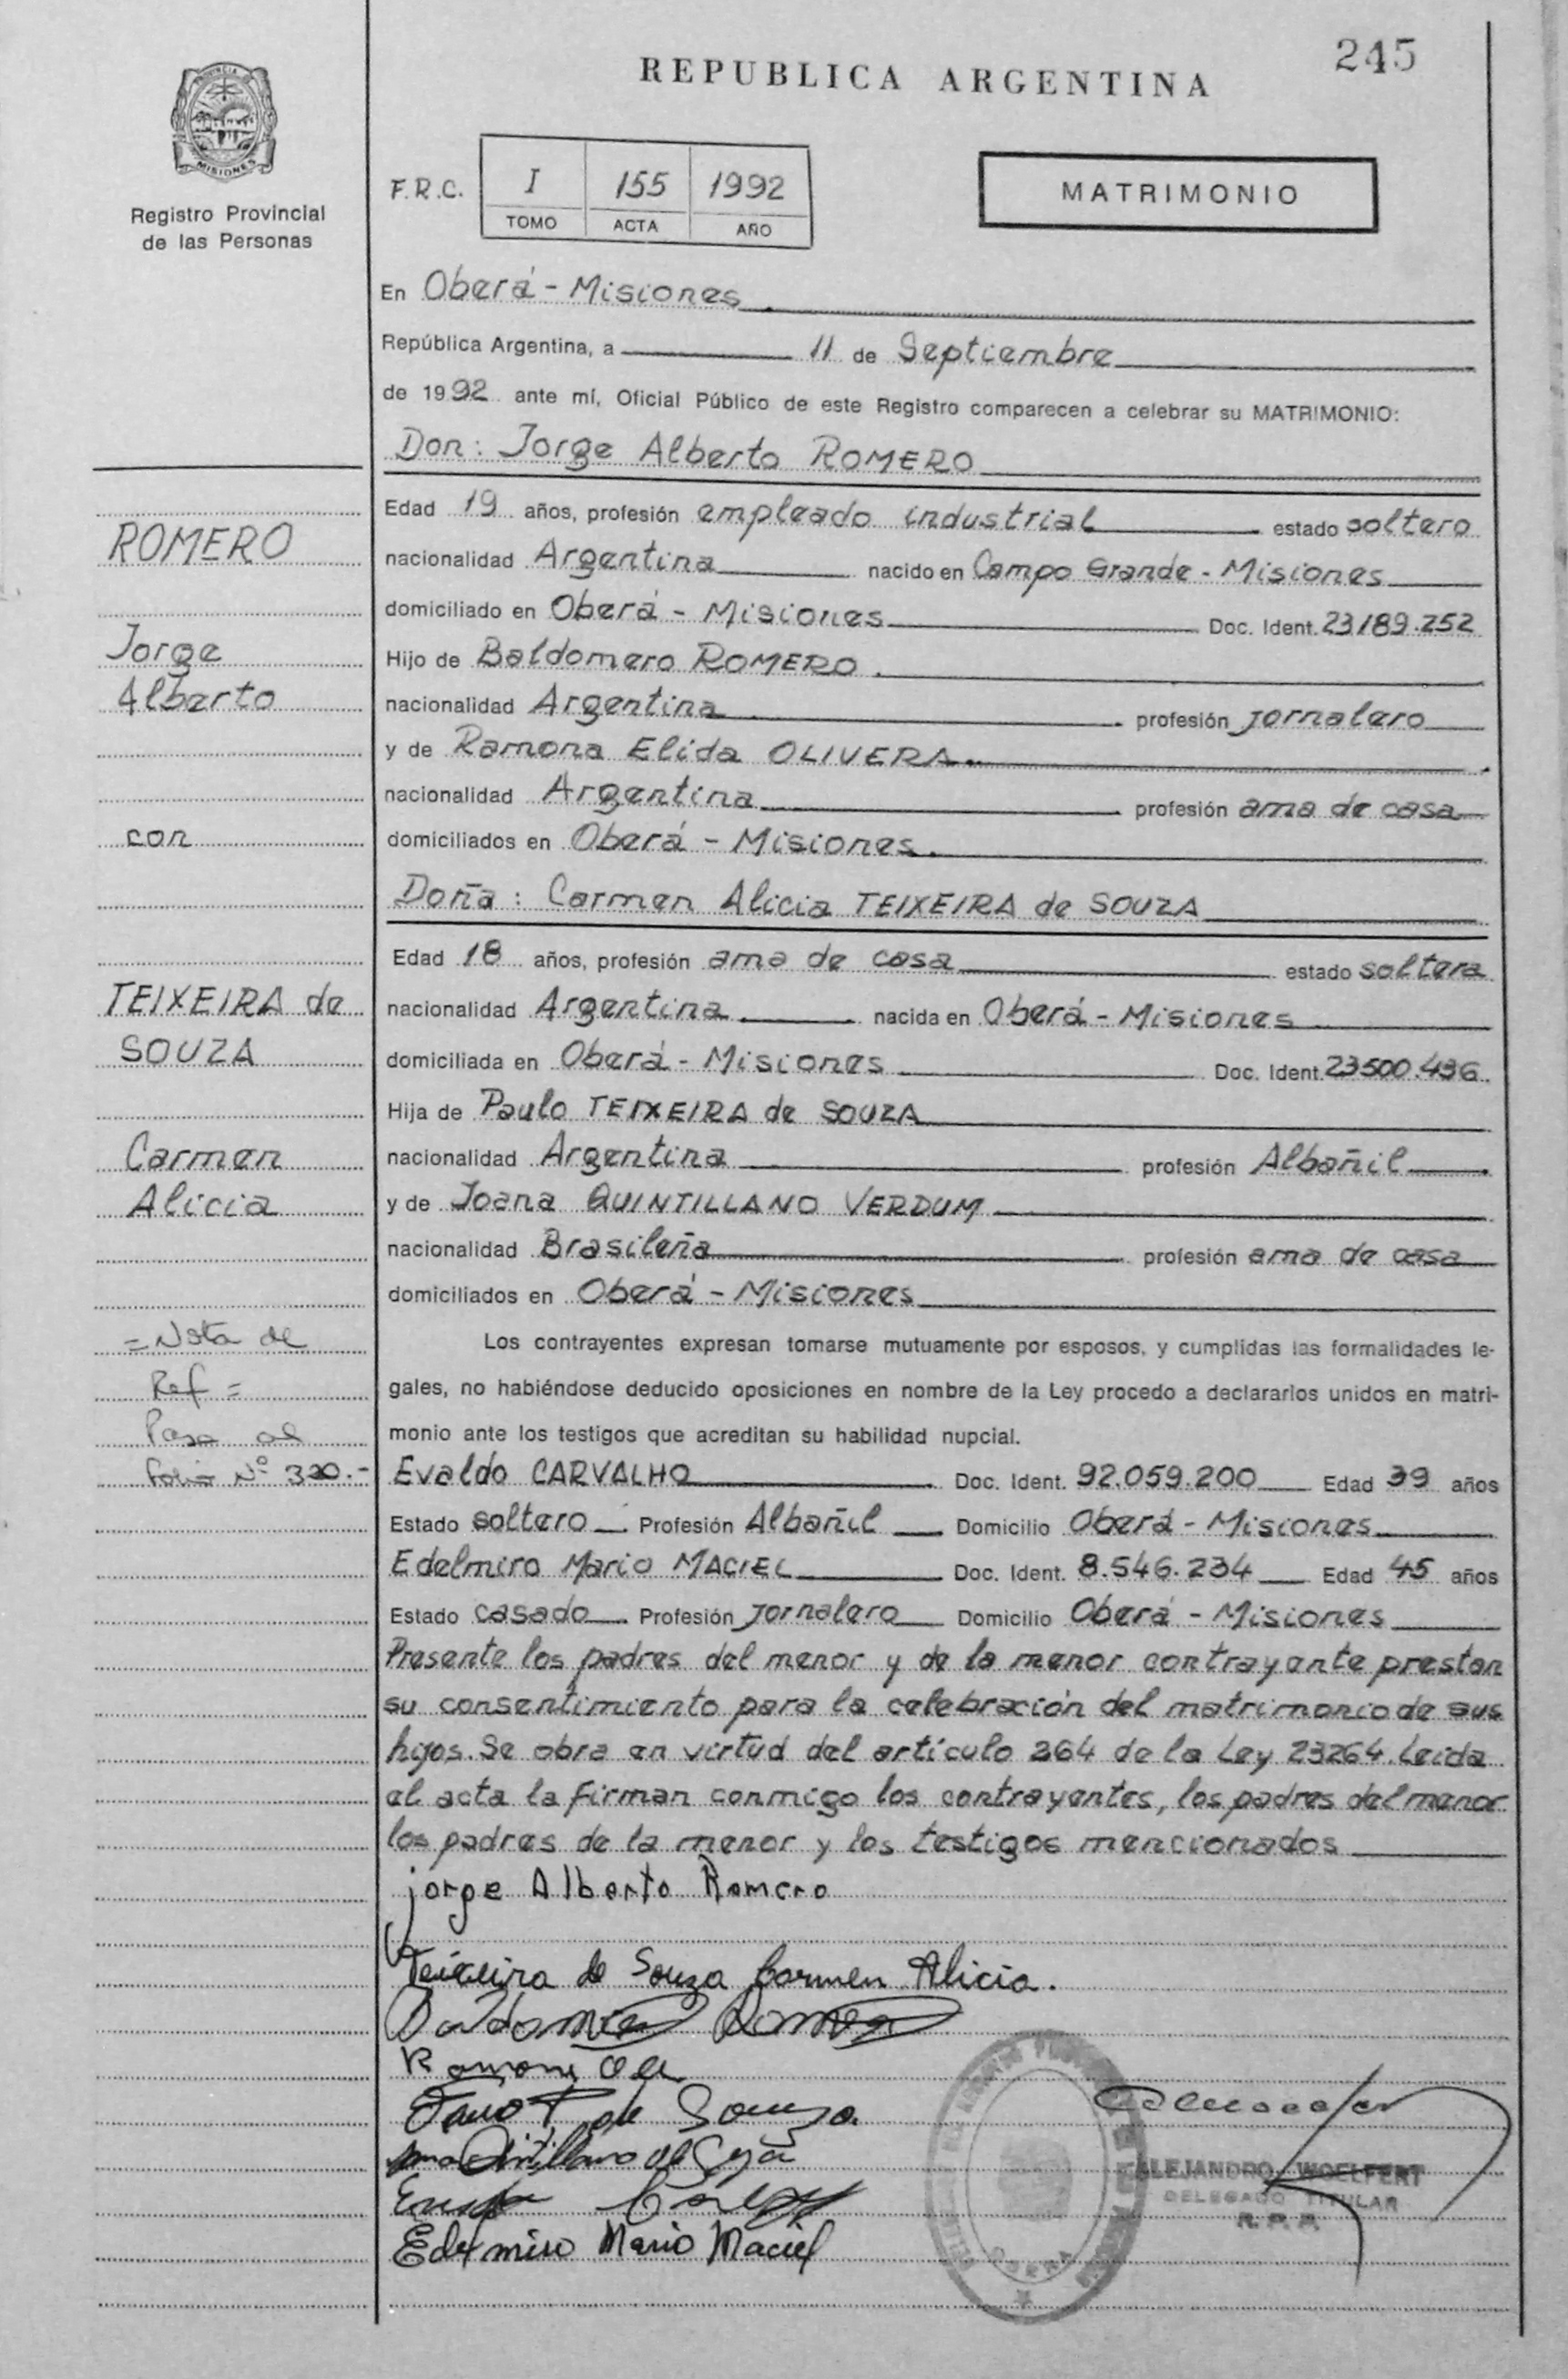 245
REPUBLICA ARGENTINA
PROVINCIA DE
MISIONES
Registro Provincial
de las Personas
F.R.C. I 155 1992
TOMO ACTA AÑO
MATRIMONIO
En Oberá - Misiones
República Argentina, a 11 de Septiembre
de 1992 ante mí, Oficial Público de este Registro comparecen a celebrar su MATRIMONIO:
Don: Jorge Alberto ROMERO
Edad 19 años, profesión empleado industrial estado soltero
ROMERO
nacionalidad Argentina nacido en Campo Grande - Misiones
domiciliado en Oberá - Misiones Doc. Ident. 23189.252
Jorge
Hijo de Baldomero ROMERO.
Alberto
nacionalidad Argentina profesión jornalero
y de Ramona Elida OLIVERA..
nacionalidad Argentina profesión ama de casa
con
domiciliados en Oberá - Misiones.
Doña: Carmen Alicia TEIXEIRA de SOUZA
Edad 18 años, profesión ama de casa estado soltera
TEIXEIRA de
nacionalidad Argentina nacida en Oberá - Misiones
SOUZA
domiciliada en Oberá - Misiones Doc. Ident. 23500.436
Hija de Paulo TEIXEIRA de SOUZA
Carmen
nacionalidad Argentina profesión Albañil
Alicia
y de Joana QUINTILLANO VERDUM
nacionalidad Brasileña profesión ama de casa
domiciliados en Oberá - Misiones
= Nota de
Ref =
Pasa al
folio Nº 320.-
Los contrayentes expresan tomarse mutuamente por esposos, y cumplidas las formalidades le-
gales, no habiéndose deducido oposiciones en nombre de la Ley procedo a declararlos unidos en matri-
monio ante los testigos que acreditan su habilidad nupcial.
Evaldo CARVALHO Doc. Ident. 92.059.200 Edad 39 años
Estado soltero Profesión Albañil Domicilio Oberá - Misiones
Edelmiro Mario MACIEL Doc. Ident. 8.546.234 Edad 45 años
Estado casado Profesión jornalero Domicilio Oberá - Misiones
Presente los padres del menor y de la menor contrayente prestan
su consentimiento para la celebración del matrimonio de sus
hijos. Se obra en virtud del artículo 264 de la Ley 23264. Leida
el acta la firman conmigo los contrayentes, los padres del menor
los padres de la menor y los testigos mencionados
jorge Alberto Romero
Teixeira de Souza Carmen Alicia.
Baldomero Romero
Ramona
de Souza
Edelmiro Mario Maciel
ALEJANDRO WOELFERT
DELEGADO TITULAR
R. P. P.
OBERA